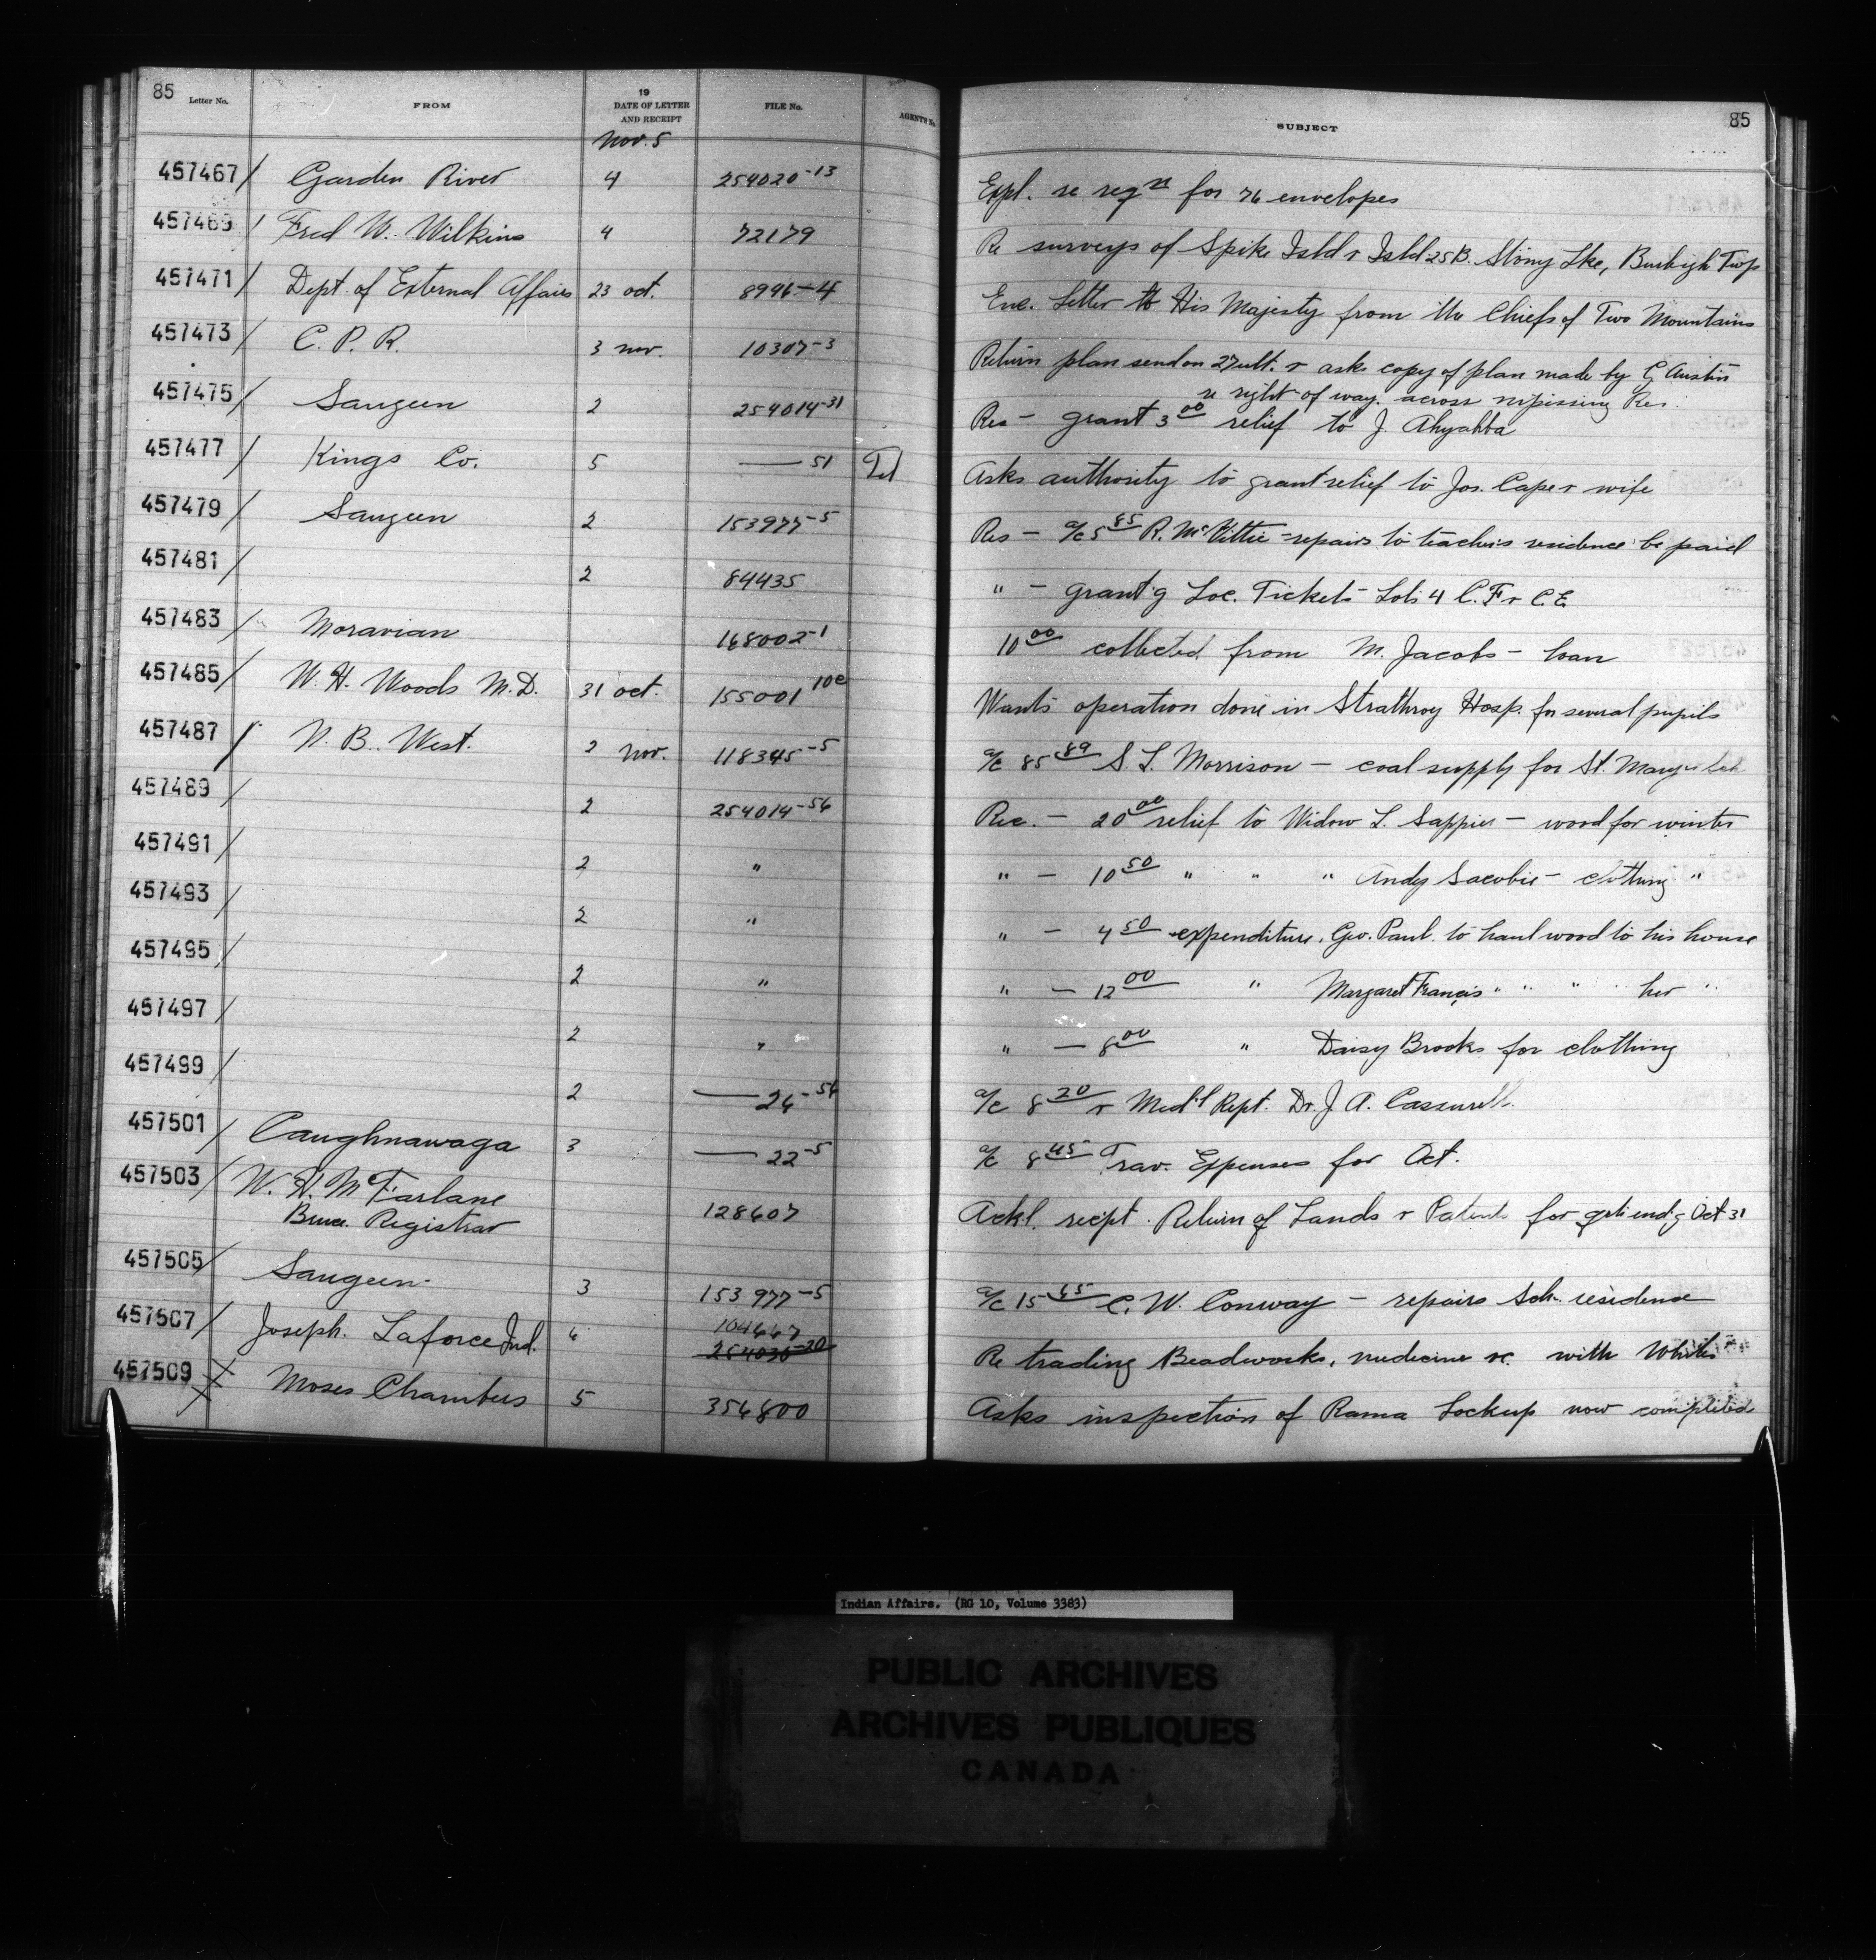 85 Letter No. FROM 19 DATE OF LETTER AND RECEIPT FILE No. AGENT'S No. SUBJECT 85
Nov. 5
457467 / Garden River 4 254020-13 Expl. re reqn for 76 envelopes
457469 / Fred W. Wilkins 4 72179 Re surveys of Spike Isld & Isld 25B. Stony Lke, Burleigh Twp
457471 / Dept. of External Affairs 23 oct. 8996-4 Enc. Letter to His Majesty from the Chiefs of Two Mountains
457473 / C. P. R. 3 nov. 10307-3 Return plan send on 27 ult. & asks copy of plan made by C. Austin
re right of way across nipissing Res.
457475 / Saugeen 2 254014-31 Res - grant 3 00 relief to J. Ahyahba
457477 / Kings Co. 5 — 51 Tel Asks authority to grant relief to Jos. Cape & wife
457479 / Saugeen 2 153977-5 Res - a/c 5 85 R. McKittie - repairs to teachers residence be paid
457481 / 2 84435 " - grant'g Loc. Tickets - Lots 4 C.F & C.E.
457483 / Moravian 168002-1 10 00 collected from M. Jacobs - loan
457485 / W. H. Woods M.D. 31 oct. 155001 10c Wants operation done in Strathroy Hosp. for several pupils
457487 / N. B. West. 2 nov. 118345-5 a/c 85 89 S. L. Morrison - coal supply for St. Mary's Sch
457489 / 2 254014-56 Rec. - 20 00 relief to Widow L. Sappier - wood for winter
457491 / 2 " " - 10 50 " " " Andy Sacobie - clothing "
457493 / 2 " " - 4 50 expenditure. Geo. Paul. to haul wood to his house
457495 / 2 " " - 12 00 " Margaret Francis " " " " her "
457497 / 2 " " - 8 00 " Daisy Brooks for clothing
457499 / 2 — 26-56 a/c 8 20 & Med'l Rept. Dr. J. A.
457501 / Caughnawaga 3 — 22-5 a/c 8 45 Trav. Expenses for Oct.
457503 / W. H. McFarlane 128607 Ackl. recpt. Return of Lands & Patents for qrtr end'g Oct 31
Bruce Registrar
457505 / Saugeen 3 153977-5 a/c 15 65 C. W. Conway - repairs Sch. residence
457507 / Joseph. Laforce Ind. 6 104447
254030-20 Re trading Beadwork, medicine &c. with Whites
457509 Moses Chambers 5 356800 Asks inspection of Rama Lockup now completed
Indian Affairs. (RG 10, Volume 3383)
PUBLIC ARCHIVES
ARCHIVES PUBLIQUES
CANADA